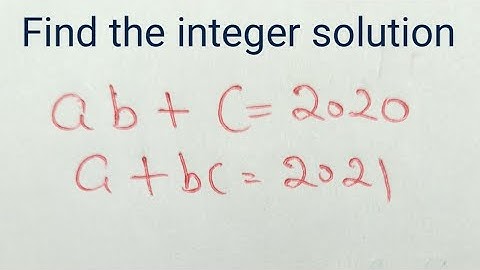 Find the integer solution
ab + c = 2020
a + bc = 2021